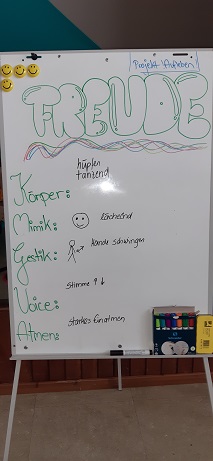 Projekt Aufleben
FREUDE
hüpfen
tanzend
Körper:
Mimik: lächelnd
Gestik: Hände schwingen
stimme ↑↓
Voice:
starkes Einatmen
Atmen: